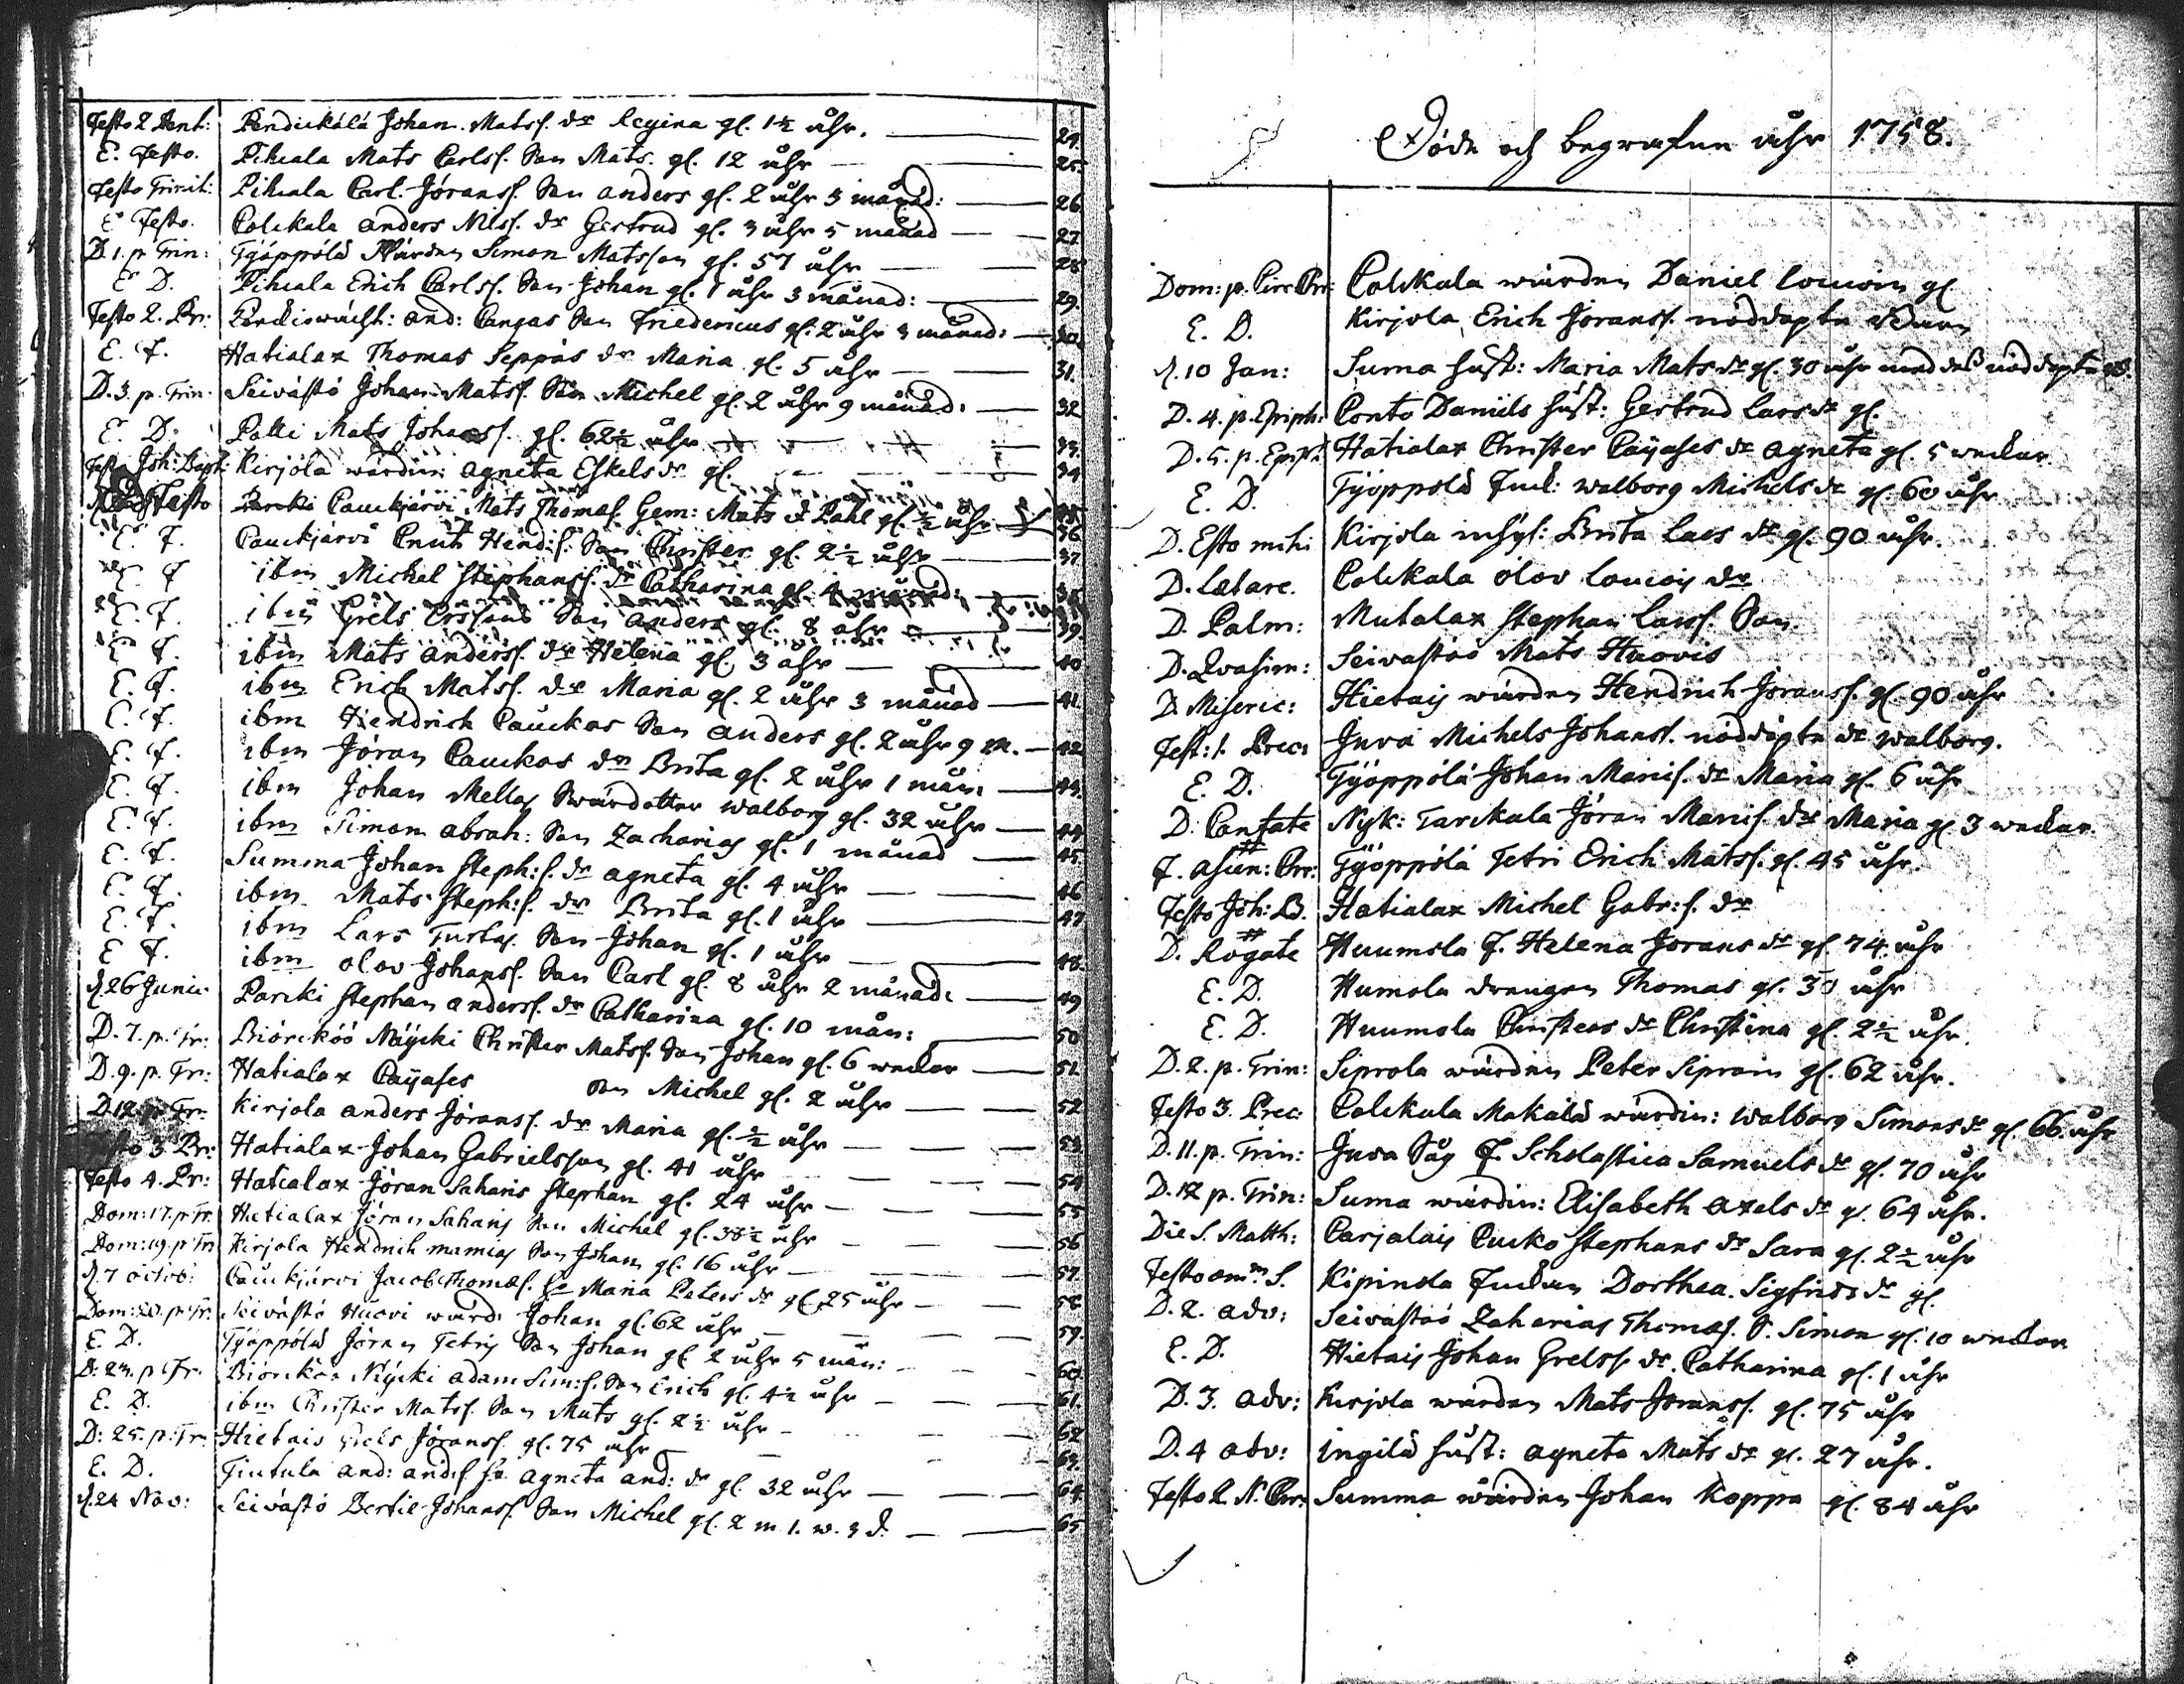 Festo 2 Pent: Pendickälä Johan Matss. dr Regina gl. 1½ åhr. 24.
E. Festo. Pihcala Mats Carlss. Son Mats. gl. 12 åhr 25.
Festo Trinit: Pihcala Carl Jöranss. Son anders gl. 2 åhr 3 månad: 26
E Festo. Colckala anders Nilss. dr Gertrud gl. 3 åhr 5 månad 27.
D. 1. p Trin: Työppölä Wärden Simon Matsson gl. 57 åhr 28
E D. Pihcala Erich Carlss. Son Johan gl. 1 åhr 3 månad: 29.
Festo 2. Pr: And: Cangas Son Friedericus gl. 2 åhr 3 månad: 30.
E. F. Hatialax Thomas Seppäs dr Maria gl. 5 åhr 31.
D. 3. p. Trin. Seivästö Johan Matss. Son Michel gl. 2 åhr 9 månad: 32
E. D. Palli Mats Johanss. gl. 62½ åhr 33.
Fest. Joh: Bapt: Kirjola wärdin: agneta Eskels dr gl. 34
Festo Pauckjärvi Mats Thomas. Gem: Mats d Pahl gl. ½ åhr 35.
E. F. Pauckjärvi Cnut Hendis. Son Christer gl. 2½ åhr 36
E. F ibm Michel Stephanss. dr Catharina gl. 4 månad: 37.
E. F. ibm Grels Erssons Son anders gl. 8 åhr 39.
E F. ibm Mats anderss. dr Helena gl. 3 åhr 40
E. F. ibm Erich Matss. dr Maria gl. 2 åhr 3 månad 41.
E. F. ibm Hendrich Pauckas Son anders gl. 2 åhr 9 m. 42
E. F. ibm Jöran Pauckas dr Brita gl. 2 åhr 1 mån: 43.
E. F. ibm Johan Mellas Swärdotter walborg gl. 32 åhr 44
E. F. ibm Simon abrah: Son Zacharias gl. 1 månad 45
E. F. Summa Johan Steph: s. dr agneta gl. 4 åhr 46
E. F. ibm Mats Steph: s. dr Brita gl. 1 åhr 47
E. F. ibm Lars Turtas. Son Johan gl. 1 åhr 48.
E F. ibm olov Johanss. Son Carl gl. 8 åhr 2 månad: 49
d. 26 Junii. Parcki Stephan anderss. dr Catharina gl. 10 mån: 50
D. 7. p. Tr: Biörckö Näycki Christer Matss. Son Johan gl. 6 weckor 51.
D. 9. p. Tr: Hatialax Cayases Son Michel gl. 2 åhr 52
D. 12. p Tr: Kirjola anders Jöranss. dr Maria gl. ½ åhr 53.
Festo 3 Pr: Hatialax Johan Gabrielsson gl. 41 åhr 54
Festo 4. Pr: Hatialax Jöran Saharis Stephan gl. 24 åhr 55
Dom: 17. p Tr. Hatialax Jöran Saharis Son Michel gl. 38½ åhr 56
Dom: 19. p Tr Kirjola Hendrich mamias Son Johan gl. 16 åhr 57.
d. 7 octob: Pauckjärvi Jacob Thomas. hu Maria Peters dr gl. 25 åhr 58
Dom: 20. p Tr. Seivästö Huovi wärd: Johan gl. 62 åhr 59.
E. D. Työppölä Jöran Tetris Son Johan gl. 2 åhr 5 mån: 60
D: 23. p Tr. Biörckö Näycki adam Sim: s. Son Erich gl. 4½ åhr 61.
E. D. ibm Christer Matss. Son Mats gl. 2½ åhr 62
D: 25. p. Tr. Hietais Grels Jöranss. gl. 75 åhr 63.
E. D. Tiutula and: andss hu agneta and: dr gl. 32 åhr 64.
d. 24 Nov: Seivästö Bertil Johanss. Son Michel gl. 2 m 1. w. 3 d. 65
Döde och begrafne åhr 1758.
Dom: p. Circ Chr: Colckala wärden Daniel Loucoin gl
E. D. Kirjola Erich Jöranss. nöddöpte
d. 10 Jan: Suma hust: Maria Mats dr gl. 30 åhr med des nöddöpte
D. 4. p. Epiph: Ponto Daniels hust: Gertrud Lars dr gl.
D. 5. p. Epiph: Hatialax Christer Cayases dr agneta gl. 5 weckor
E. D. Tyoppölä Enck: walborg Michels dr gl. 60 åhr
D. Esto mihi Kirjola inhys: Brita Lars dr gl. 90 åhr.
D. Lætare. Colckala olov Loucois dr
D. Palm: Mutalax Stephan Larss. Son
D. Qvasim: Seivästöö Mats Huovis
D. Miseric: Hietais wärden Hendrich Jöranss. gl. 90 åhr
Fest: 1. Prec: Juva Michels Johanss. nöddöpte dr walborg.
E. D. Työppölä Johan Manis. dr Maria gl. 6 åhr
D. Cantate Nyk: Tarckala Jöran Manis. dr Maria gl. 3 weckor.
F. Asscen: Chr: Työppölä Tetri Erich Matss. gl. 45 åhr.
Festo Joh: B. Hatialax Michel Gabr: s. dr
D. Rogate Huumola F. Helena Jörans dr gl. 74 åhr
E. D. Humola drengen Thomas gl. 30 åhr
E. D. Huumola Christers dr Christina gl. 2½ åhr.
D. 2. p. Trin: Siprola wärden Peter Siprain gl. 62 åhr.
Festo 3. Prec: Colckala Makälä wärdin: walborg Simons dr gl. 66. åhr
D. 11. p. Trin: Juva Såg F. Scholastica Samuels dr gl. 70 åhr
D. 12 p. Trin: Suma wärdin: Elisabeth axels dr gl. 64 åhr.
Die S. Matth: Carjalais Cucko Stephans dr Sara gl. 2½ åhr
Festo omm S. Kipinola Enckan Dorthea Sigfrids dr gl.
D. 2. adv: Seivästöö Zacharias Thomas. S. Simon gl. 10 weckor
E. D. Hietais Johan Grelss. dr. Catharina gl. 1 åhr
D. 3. adv: Kirjola wärden Mats Jöranss. gl. 75 åhr
D. 4 adv: Ingilä hust: agneta Mats dr gl. 27 åhr.
Festo 2. N. Chr: Summa wärden Johan Koppa gl. 84 åhr